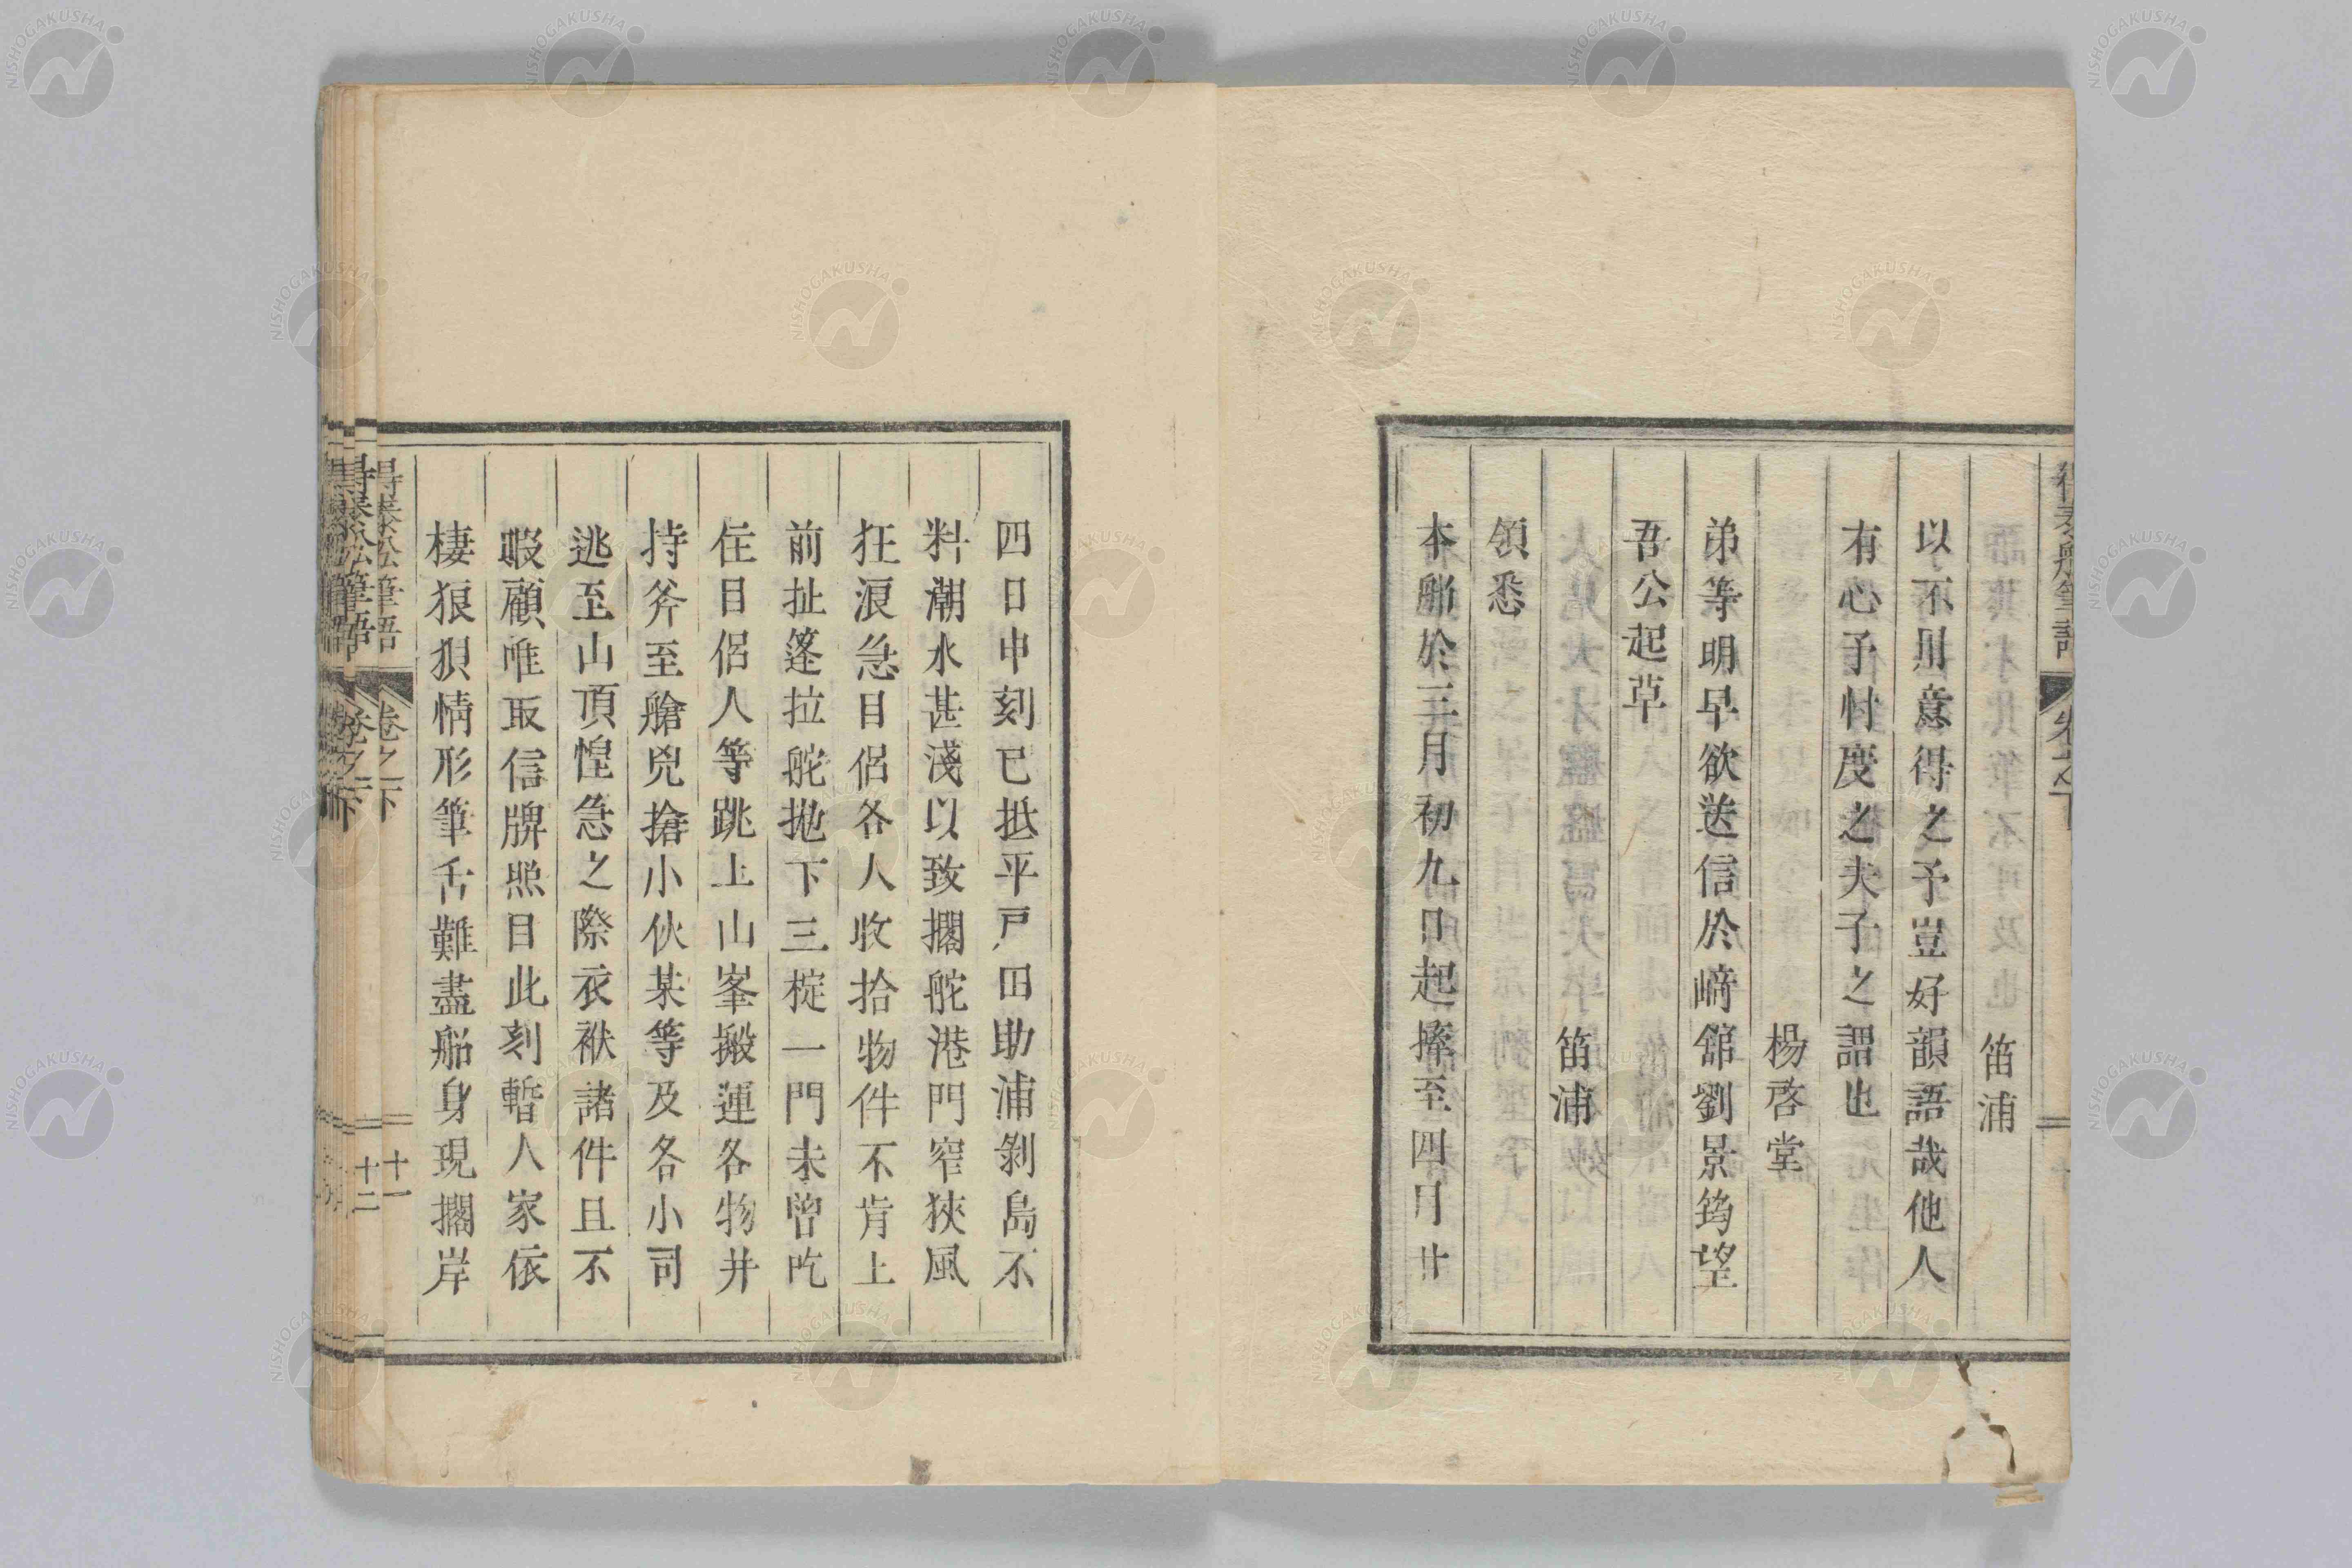 得泰船筆語 卷之下
笛浦
以不用意得之予豈好韻語哉他人
有心予忖度之夫子之謂也
楊啓堂
弟等明早欲送信於﨑館劉景筠望
吾公起草
笛浦
領悉
本船於三月初九日起椗至四月廿
四日申刻已抵平戸田助浦剝島不
料潮水甚淺以致擱舵港門窄狹風
狂浪急目侶各人收拾物件不肯上
前扯篷拉舵抛下三椗一門未曾吃
住目侶人等跳上山峯搬運各物并
持斧至艙兇搶小伙某等及各小司
逃至山頂惶急之際衣袱諸件且不
暇顧唯取信牌照目此刻暫人家依
棲狼狽情形筆舌難盡船身現擱岸
得泰船筆語 卷之下 十一
十二
NISHOGAKUSHA